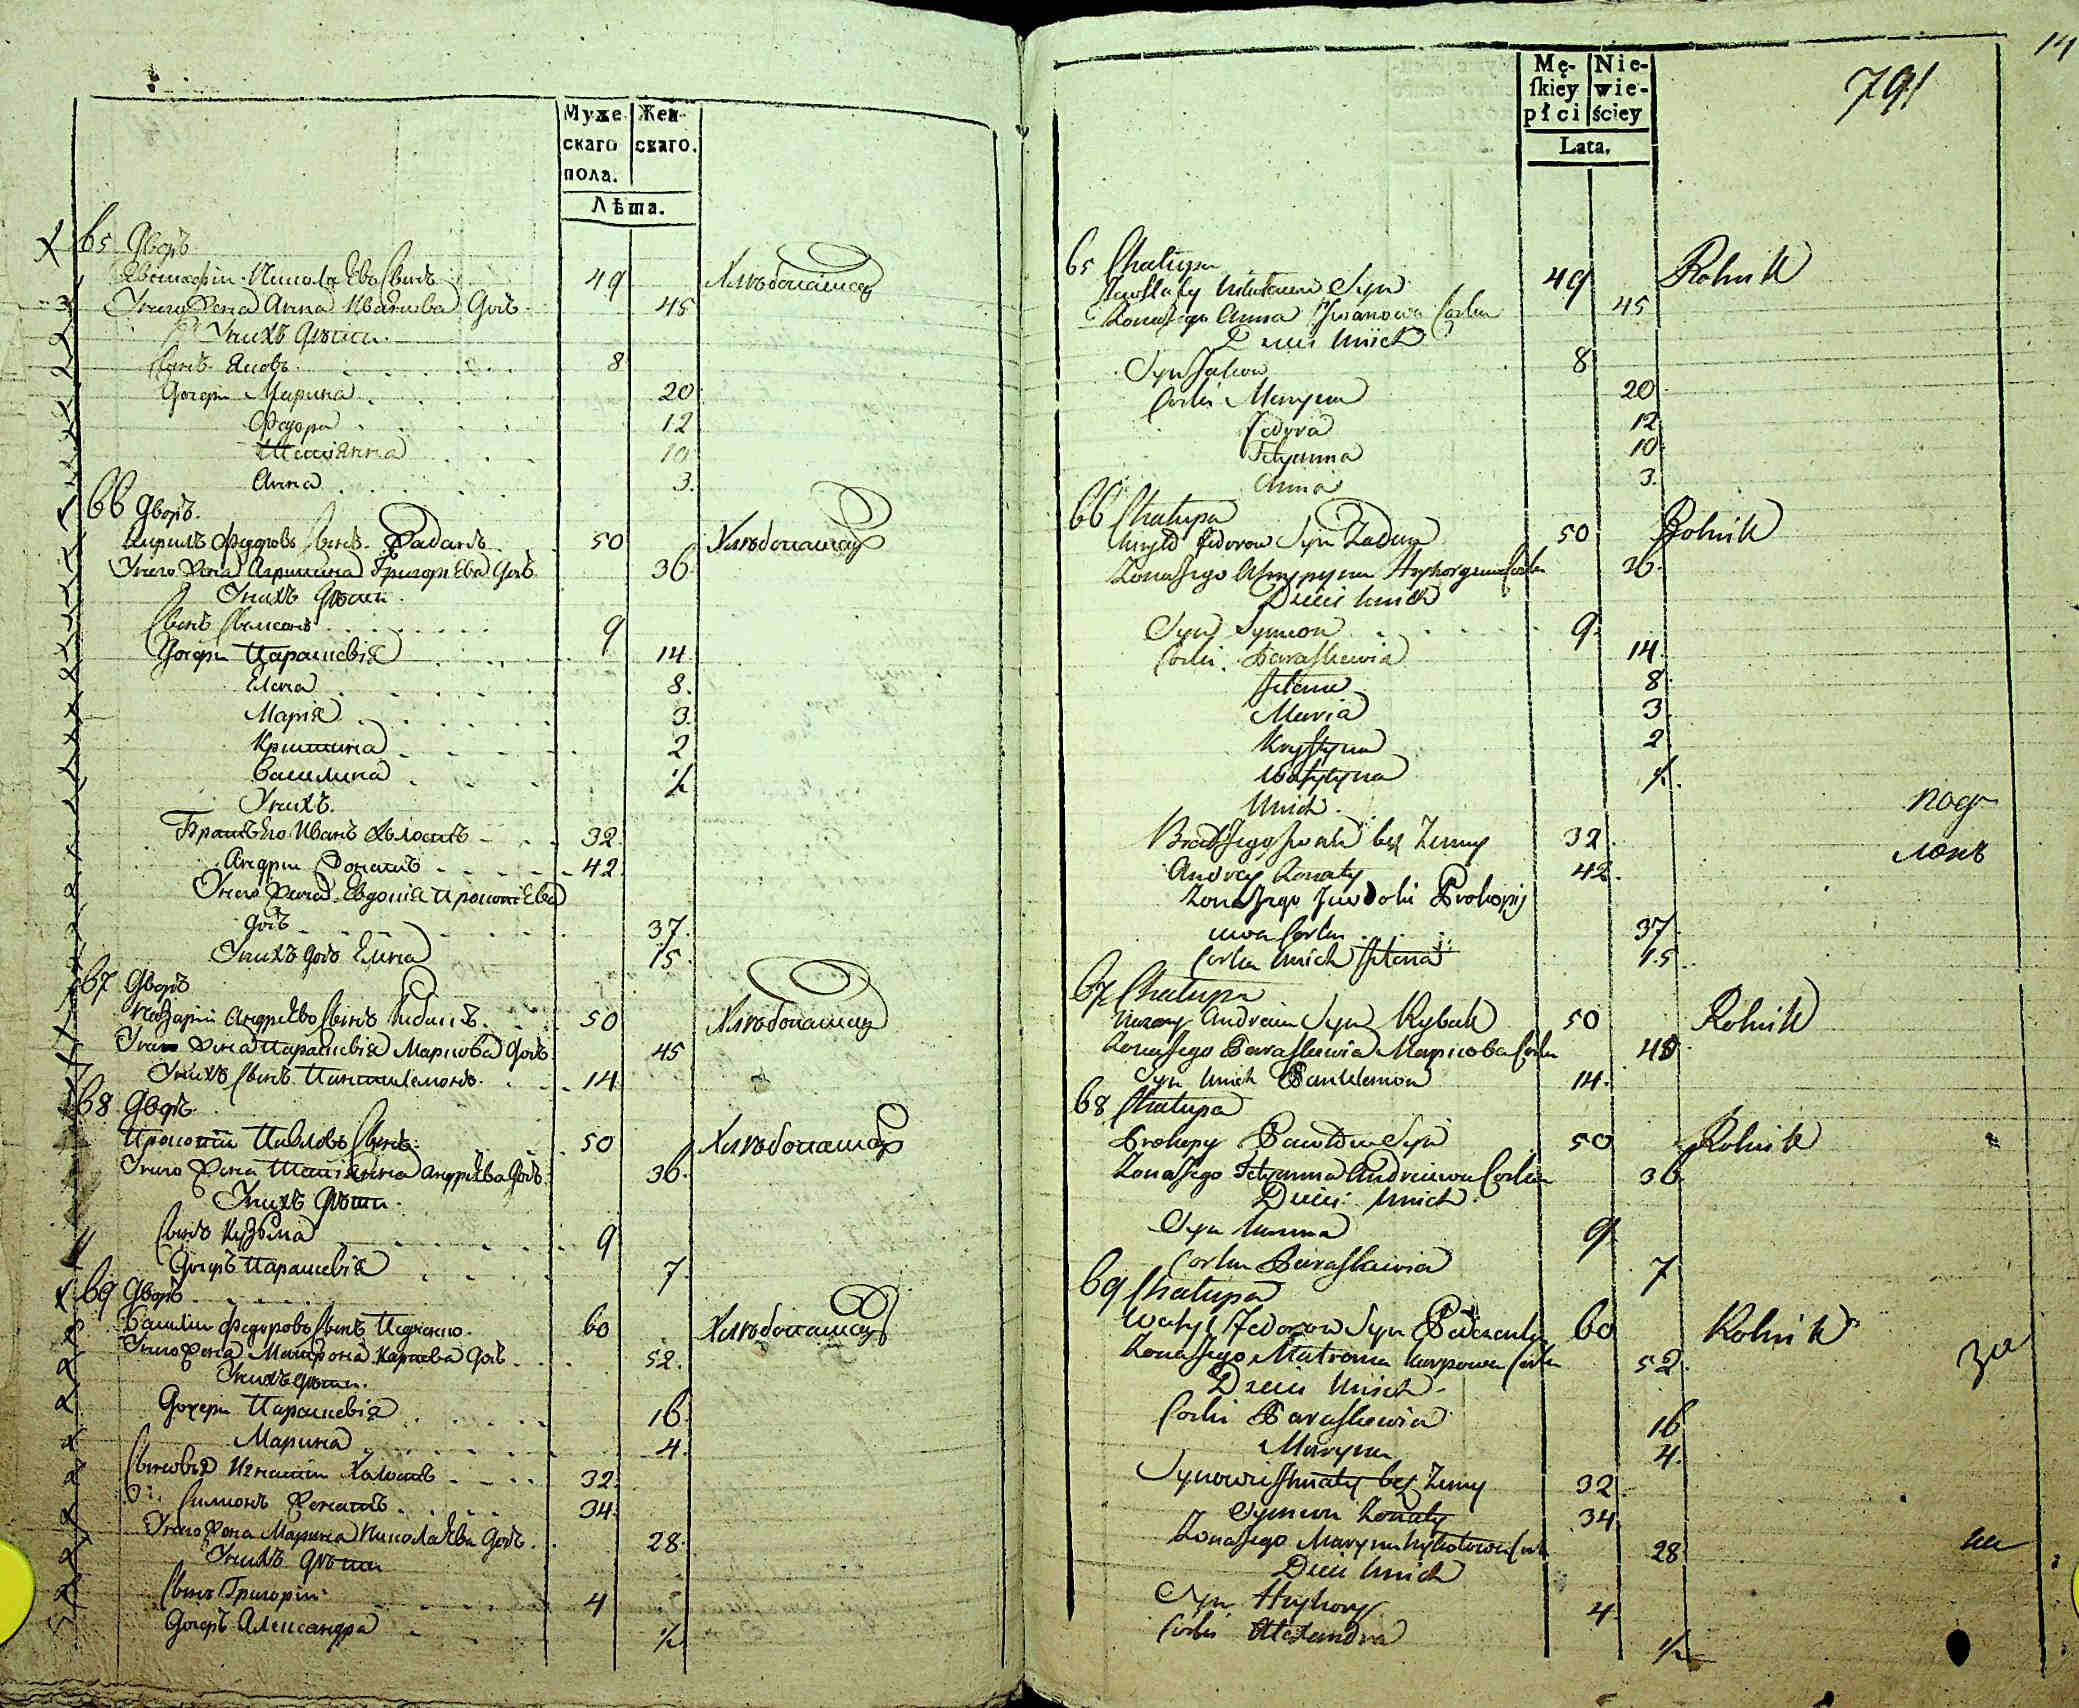 Муже
скаго
пола.
Жен-
скаго.
Лѣта.
65 Дворъ
Николаевъ Сынъ 49 Хлѣбопашецъ
У него Жена Анна Иванова Дочь 45
У нихъ Дѣти
Сынъ Яковъ 8
Дочери Марина 20
Федора 12
Татіянна 10
Анна 3
66 Дворъ
Кирилъ Федоровъ Сынъ 50 Хлѣбопашецъ
У него Жена Агрипина Григорїева Дочь 36
У нихъ Дѣти
Сынъ Симеонъ 9
Дочери Парасковія 14
Елена 8
Марія 3
Кристина 2
Василина ½
У нихъ
Братъ Его Иванъ Холостъ 32
Андрїи Женатъ 42
У него Жена Евдокія Прокопїева
Дочь 37
У нихъ Дочь Елена 15
67 Дворъ
Назарїи Андрѣевъ Сынъ Рибакъ 50 Хлѣбопашецъ
У него Жена Парасковія Маркова Дочь 45
У нихъ Сынъ Пантилемонъ 14
68 Дворъ
Прокопїи Павловъ Сынъ 50 Хлѣбопашецъ
У него Жена Татіянна Андрѣева Дочь 36
У нихъ Дѣти
Сынъ Кузьма 9
Дочерь Парасковія 7
69 Дворъ
Василїи Федоровъ Сынъ 60 Хлѣбопашецъ
У него Жена Матрона Карпова Дочь 52
У нихъ Дѣти
Дочери Парасковія 16
Марина 4
Сыновья Игнатїи Холостъ 32
Симионъ Женатъ 34
У него Жена Марина Николаева Дочь 28
У нихъ Дѣти
Сынъ Григорїи 4
Дочерь Александра ½
14
791
Mę-
ſkiey
płci
Nie-
wie-
ściey
Lata.
65 Chałupa
Syn 49 Rolnik
Zona Jego Anna Jwanowa Corka 45
Dzieci Unich
Syn Jakow 8
Corki Maryna 20
Fedora 12
Tetyanna 10
Anna 3
66 Chałupa
Kiryło Fedorow Syn 50 Rolnik
Zona Jego Hryhorgiewa Corka 36
Dzieci Unich
Syn Symeon 9
Corki Paraskewia 14
Jelena 8
Maria 3
Krystyna 2
Wasylyna ½
Unich
Brat Jego Jwan bez Zenny 32
Andrey Zonaty 42
Zona Jego Jewdoki Prokopij
ewa Corka 37
Corka Unich Jelena 15
подо
67 Chałupa
Nazary Andreiew Syn Rybak 50 Rolnik
Zona Jego Paraskewia Маркова Corka 45
Syn Unich Pantilemon 14
68 Chałupa
Prokopy Pawłow Syn 50 Rolnik
Zona Jego Tetyanna Andreiewa Corka 36
Dzieci Unich
Syn Kuzma 9
Corka Paraskewia 7
69 Chałupa
Wasyl Fedorow Syn 60 Rolnik
Zona Jego Matrona Karpowa Corka 52
Dzieci Unich
Corki Paraskewia 16
Maryna 4
Synowie Jhnaty bez Zenny 32
Symeon Zonaty 34
Zona Jego Maryna Mykołaiowa Corka 28
Dzieci Unich
Syn Hryhory 4
Corki Alexandra ½